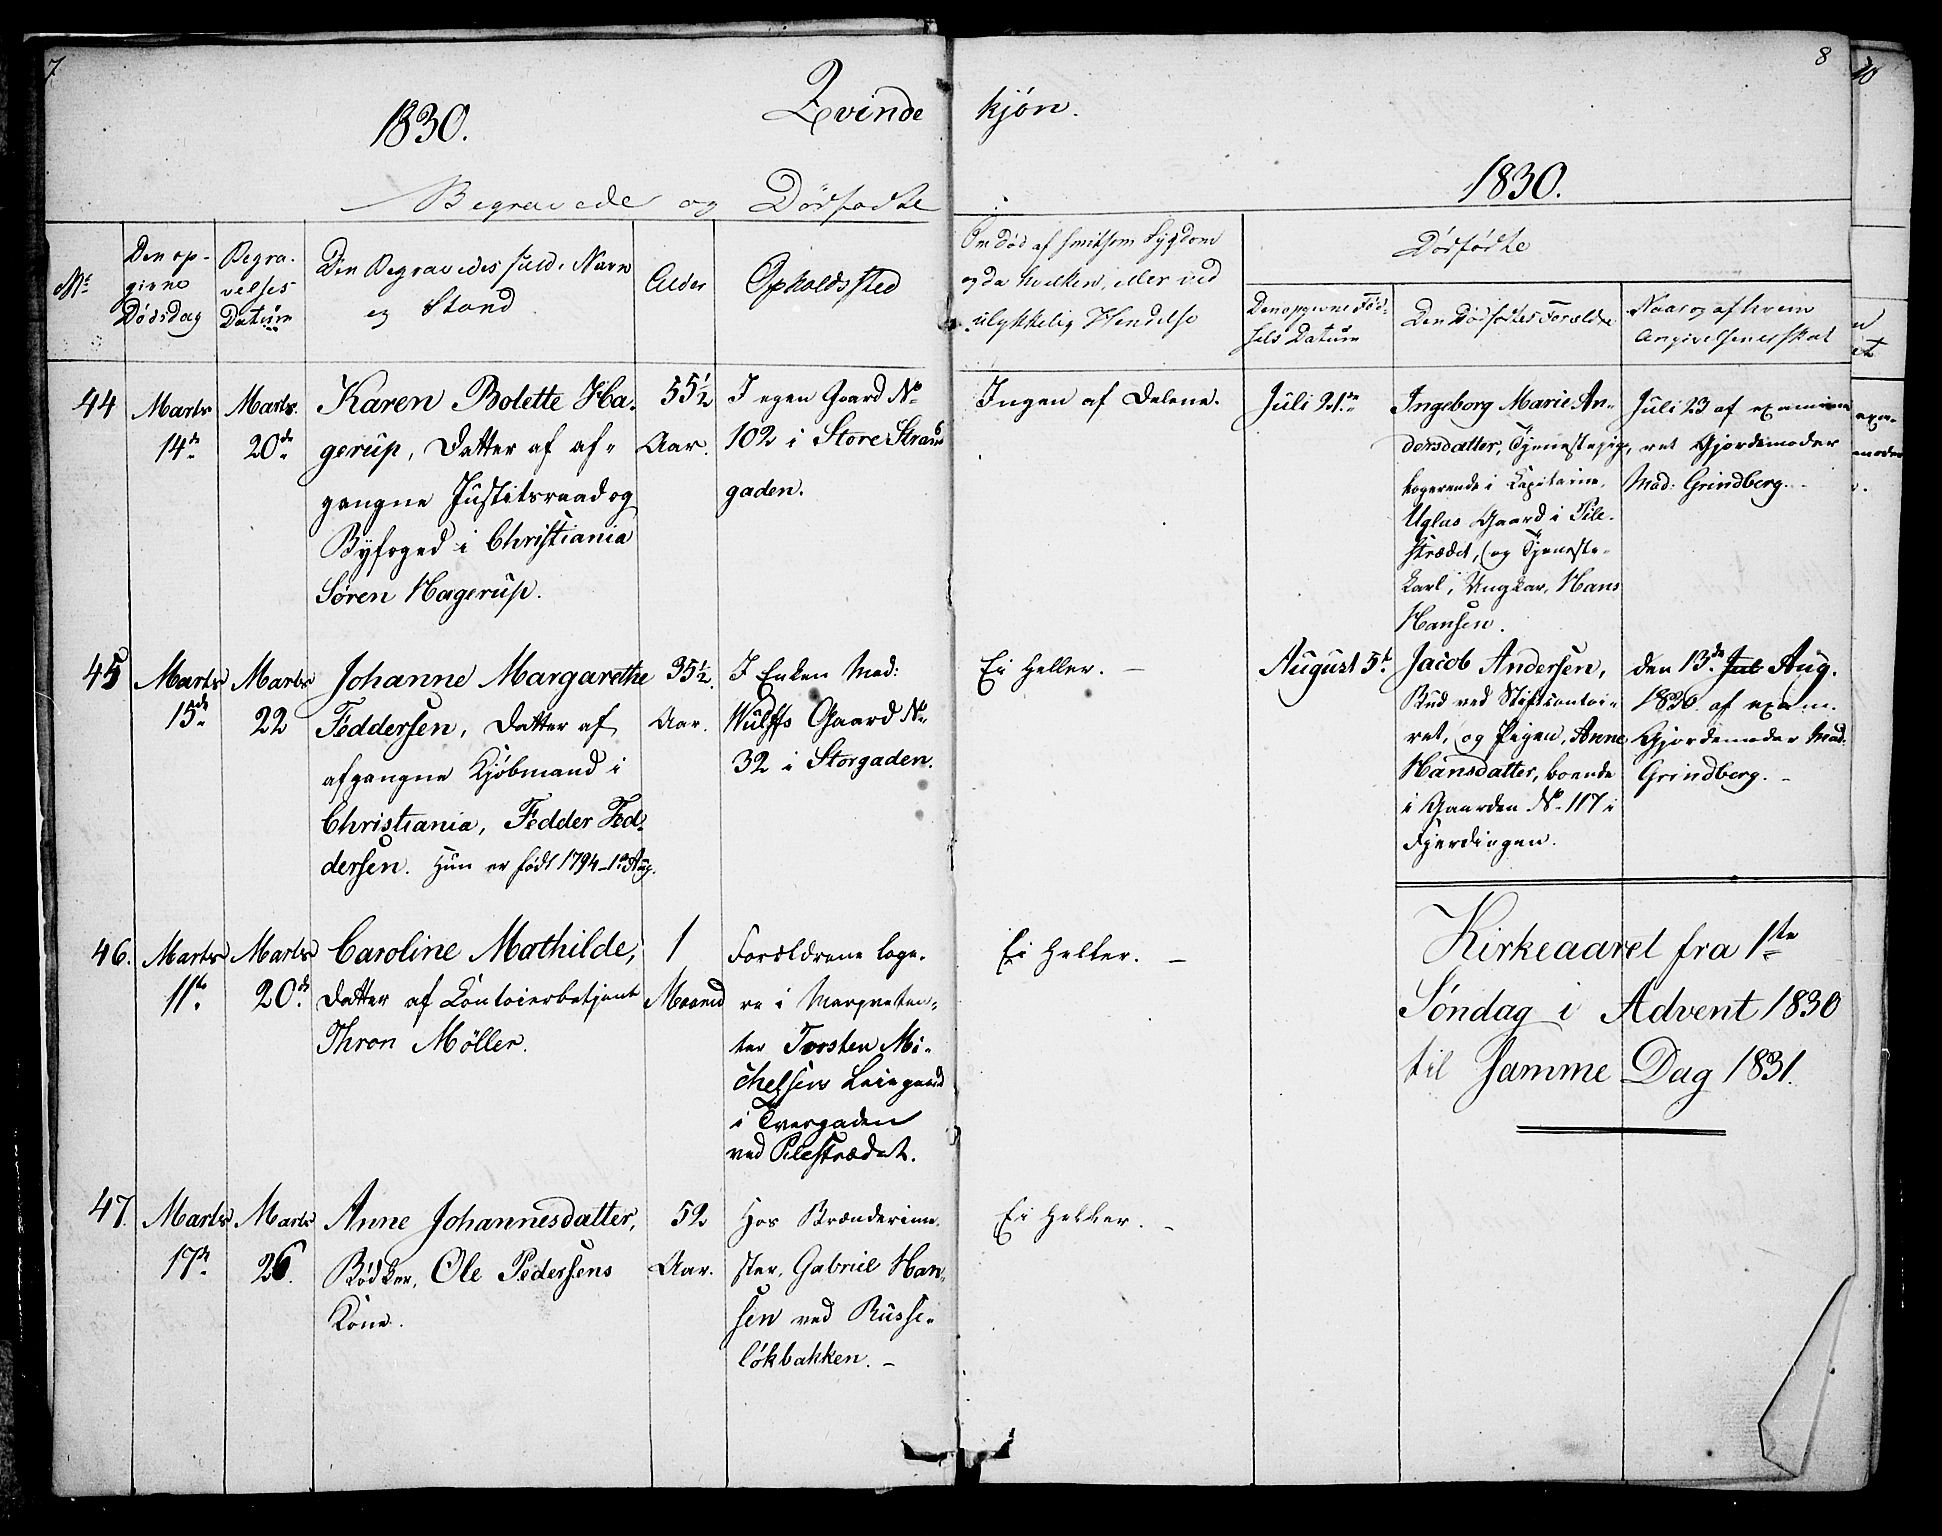 7
8
10
1830.
Qvinde kjøn.
1830.
Begravede og Dødfødte
No
Den op-
givne
Dødsdag
Begra-
velses
Datum
Den Begravedes fuld. Navn
og Stand
Alder
Opholdssted
Om død af smitsom Sygdom
og da hvilken, eller ved
ulykkelig Hendelse
Dødfødte
Den opgivne Fød-
sels Datum
Den Dødfødtes Forældre
Naar og af hvem
Angivelsen er skat
44
Marts
14de
Marts.
20de
Karen Bolette Ha-
gerup, Datter af af-
gangne Justitsraad og
Byfoged i Christiania
Søren Hagerup.
55½
Aar.
I egen Gaard No
102 i Store Strand
gaden.
Ingen af Delene.
Juli 21de
Ingeborg Marie An-
dersdatter, Tjenestepige,
logerende i Capitaine
Uglas Gaard i Pile-
strædet, og Tjeneste-
karl, Ungkar, Hans
Hansen.
Juli 23 af examine-
ret Gjordemoder
Mad: Grindberg.
45
Marts
15de
Marts
22
Johanne Margarethe
Feddersen, Datter af
afgangne Kjøbmand i
Christiania, Fedder Fed-
dersen. Hun er født 1794 - 1ste Aug.
35½
Aar.
I Enken Mad:
Wulffs Gaard No
32 i Storgaden.
Ei heller. -
August 5te
Jacob Andersen,
Bud ved Stiftscontoi-
ret, og Pigen, Anne
Hansdatter, boende
i Gaarden No 117 i
Fjerdingen.
den 13de Jul Aug.
1830 af exam.
Gjordemoder Mad:
Grindberg. -
46.
Marts
11te
Marts
20de
Caroline Mathilde,
Datter af Contoirbetjent
Thron Möller.
1
Maaned
Forældrene loge-
re i Marqveten-
ter Torsten Mi-
chelsens Leiegaard
i Tvergaden
ved Pilestrædet.
Ei heller. -
Kirkeaaret fra 1ste
Søndag i Advent 1830
til samme Dag 1831.
47.
Marts
17de
Marts
26.
Anne Johannesdatter,
Bødker, Ole Pedersens
Kone.
52
Aar.
Hos Brænderime-
ster, Gabriel Han-
sen ved Russe-
løkbakken. -
Ei heller. -